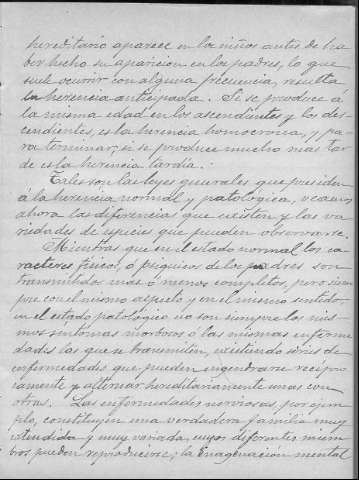 hereditario aparece en los niños antes de ha
ber hecho su aparicion en los padres, lo que
suele ocurrir con alguna frecuencia, resulta
la herencia anticipada. Si se produce á
la misma edad en los ascendientes y los des-
cendientes, es la herencia homocrona, y pa-
ra terminar, si se produce mucho mas tar
de es la herencia tardia.
Tales son las leyes generales que presiden
á la herencia normal y patológica, veamos
ahora las diferencias que existen y las va
riedades de especies que pueden observarse.
Mientras que en el estado normal los ca-
racteres fisicos, ó psiquicos de los padres son
transmitidos mas ó menos completos, pero siem
pre con el mismo aspecto y en el mismo sentido,
en el estado patológico no son siempre los mis-
mos sintomas morbosos ó las mismas enferme
dades las que se transmiten, existiendo séries de
enfermedades que pueden engendrarse recipro
camente y alternar hereditariamente unas con
otras. Las enfermedades nerviosas, por ejem
plo, constituyen una verdadera familia muy
extendida y muy variada, cuyos diferentes miem
bros pueden reproducirse; la Enagenación mental